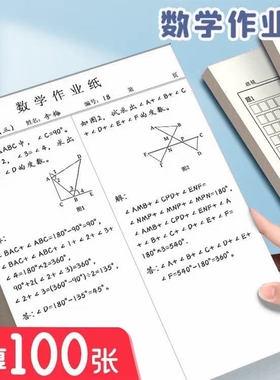 数学作业
数学作业纸
姓名：李梅 编号：18 第 页
△ABC中，∠C=90°，
∠2，∠3=∠4，求出
∠D的度数。
图1
∠BAC+∠ABC=180°-90°=90°，
∠BAC+∠ABC+∠1+∠2+∠3+
∠4=180°×2=360°，
90°+2(∠2+∠3)=360°，
∠2+∠3=(360°-90°)÷2=135°，
答：∠D=180°-135°=45°。
如图2，试求出∠A+∠B+∠C
+∠D+∠E+∠F的度数。
图2
解：
∠AMB+∠CPD+∠ENF=
∠NMP+∠MNP+∠MPN=180°，
∠AMB+∠CPD+∠ENF+∠A
+∠B+∠C+∠D+∠E+∠F=
180°×3=540°，
答：∠A+∠B+∠C+∠D+∠E+
∠F=540°-180°=360°。
班级
题1
厚100张